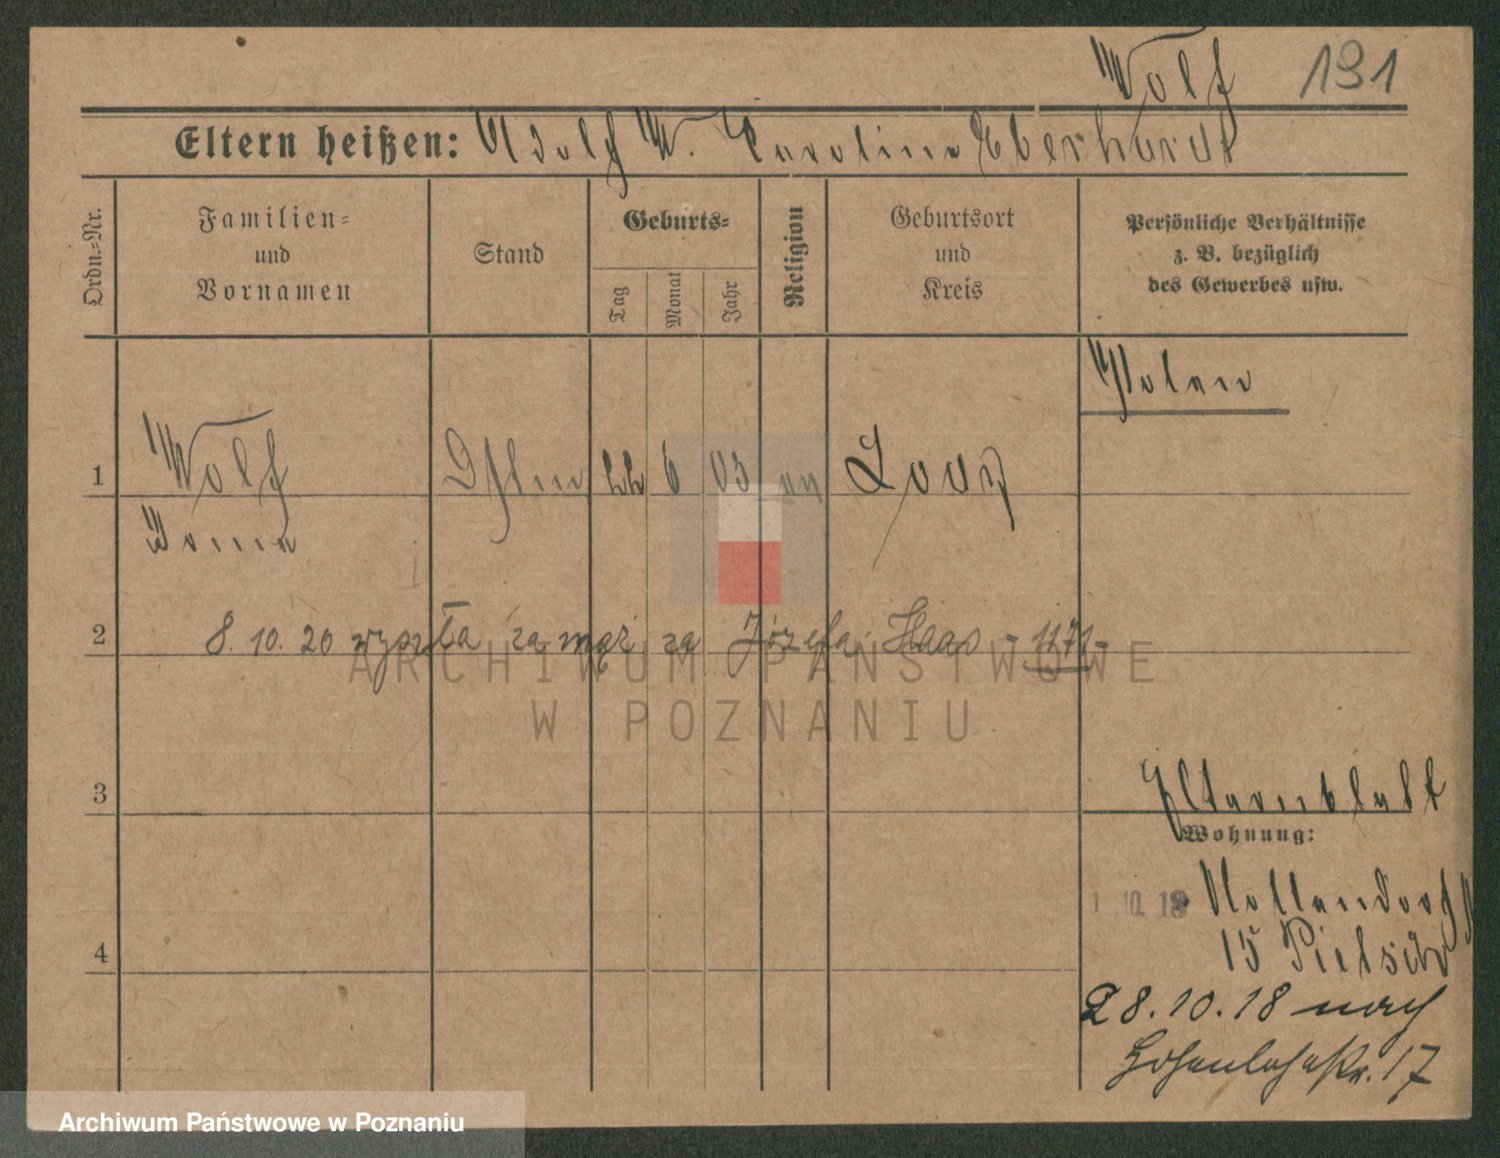 Wolf 191
Eltern heißen: Adolf W. Caroline Eberhardt
Ordn.=Nr.
Familien=
und
Vornamen
Stand
Geburts=
Tag
Monat
Jahr
Religion
Geburtsort
und
Kreis
Persönliche Verhältnisse
z. B. bezüglich
des Gewerbes usw.
Polen
1 Wolf 22 6 03 Lodz
Irma
2 8. 10. 20 wyszła za mąż za Józefa Haas - 1171-
ARCHIWUM PAŃSTWOWE
W POZNANIU
3 Elternblatt
Wohnung:
1 10. 18 Nollendorf
15
4
28.10.18 nach
Hohenlohestr. 17
Archiwum Państwowe w Poznaniu